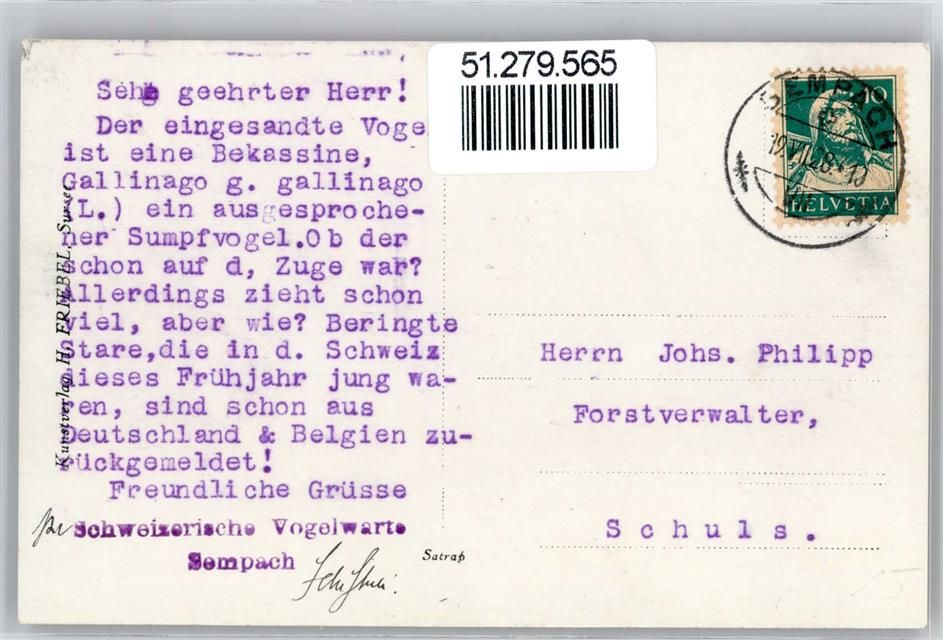 51.279.565
Sehr geehrter Herr!
Der eingesandte Voge
ist eine Bekassine,
Gallinago g. gallinago
(L.) ein ausgesproche-
ner Sumpfvogel.Ob der
schon auf d, Zuge war?
Allerdings zieht schon
viel, aber wie? Beringte
Stare,die in d. Schweiz
dieses Frühjahr jung wa-
ren, sind schon aus
Deutschland & Belgien zu-
rückgemeldet!
Freundliche Grüsse
Schweizerische Vogelwarte
Sempach
Kunstverlag H. FRIEBEL, Sursee
Satrap
SEMPACH
10
HELVETIA
Herrn Johs. Philipp
Forstverwalter,
Schuls.